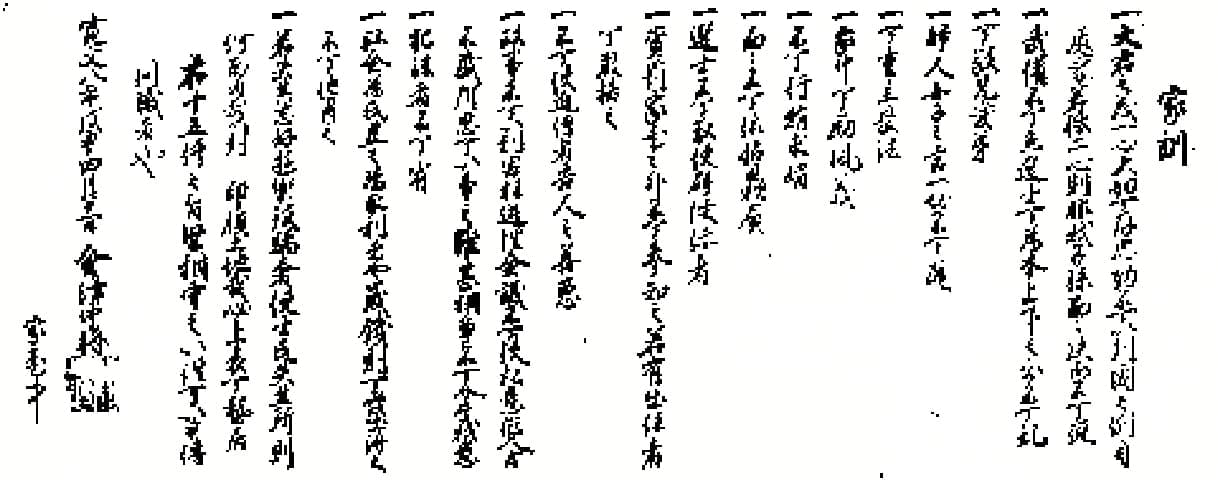 家訓
一大君之義一心大切可存忠勤不可以列国之例自
処焉若懐二心則非我子孫面々決而不可従
一武備不可怠選士可為本上下之分不可乱
一可敬兄愛弟
一婦人女子之言一切不可聞
一可重主畏法
一家中可励風義
一不可行賄求媚
一面々不可依怙贔屓
一選士不可取便辟便佞者
一賞罰家老之外不可令参知之若有出位者
可厳格之
一不可使近侍者告人之善悪
一政事不可以利害枉道理僉議不可挟私意拒人言
不蔵所思可以争之雖甚相争不可介我意
一犯法者不可宥
一社倉為民置之為永利者也歳饑則可発出済之
不可他用之
一若失其志好遊楽致驕奢使士民失其所則
何面目戴封印領土地哉必上表可蟄居
右十五件之旨堅相守之以往可以申伝
同職者也
寛文八年戊申四月十一日 会津中将
家老中